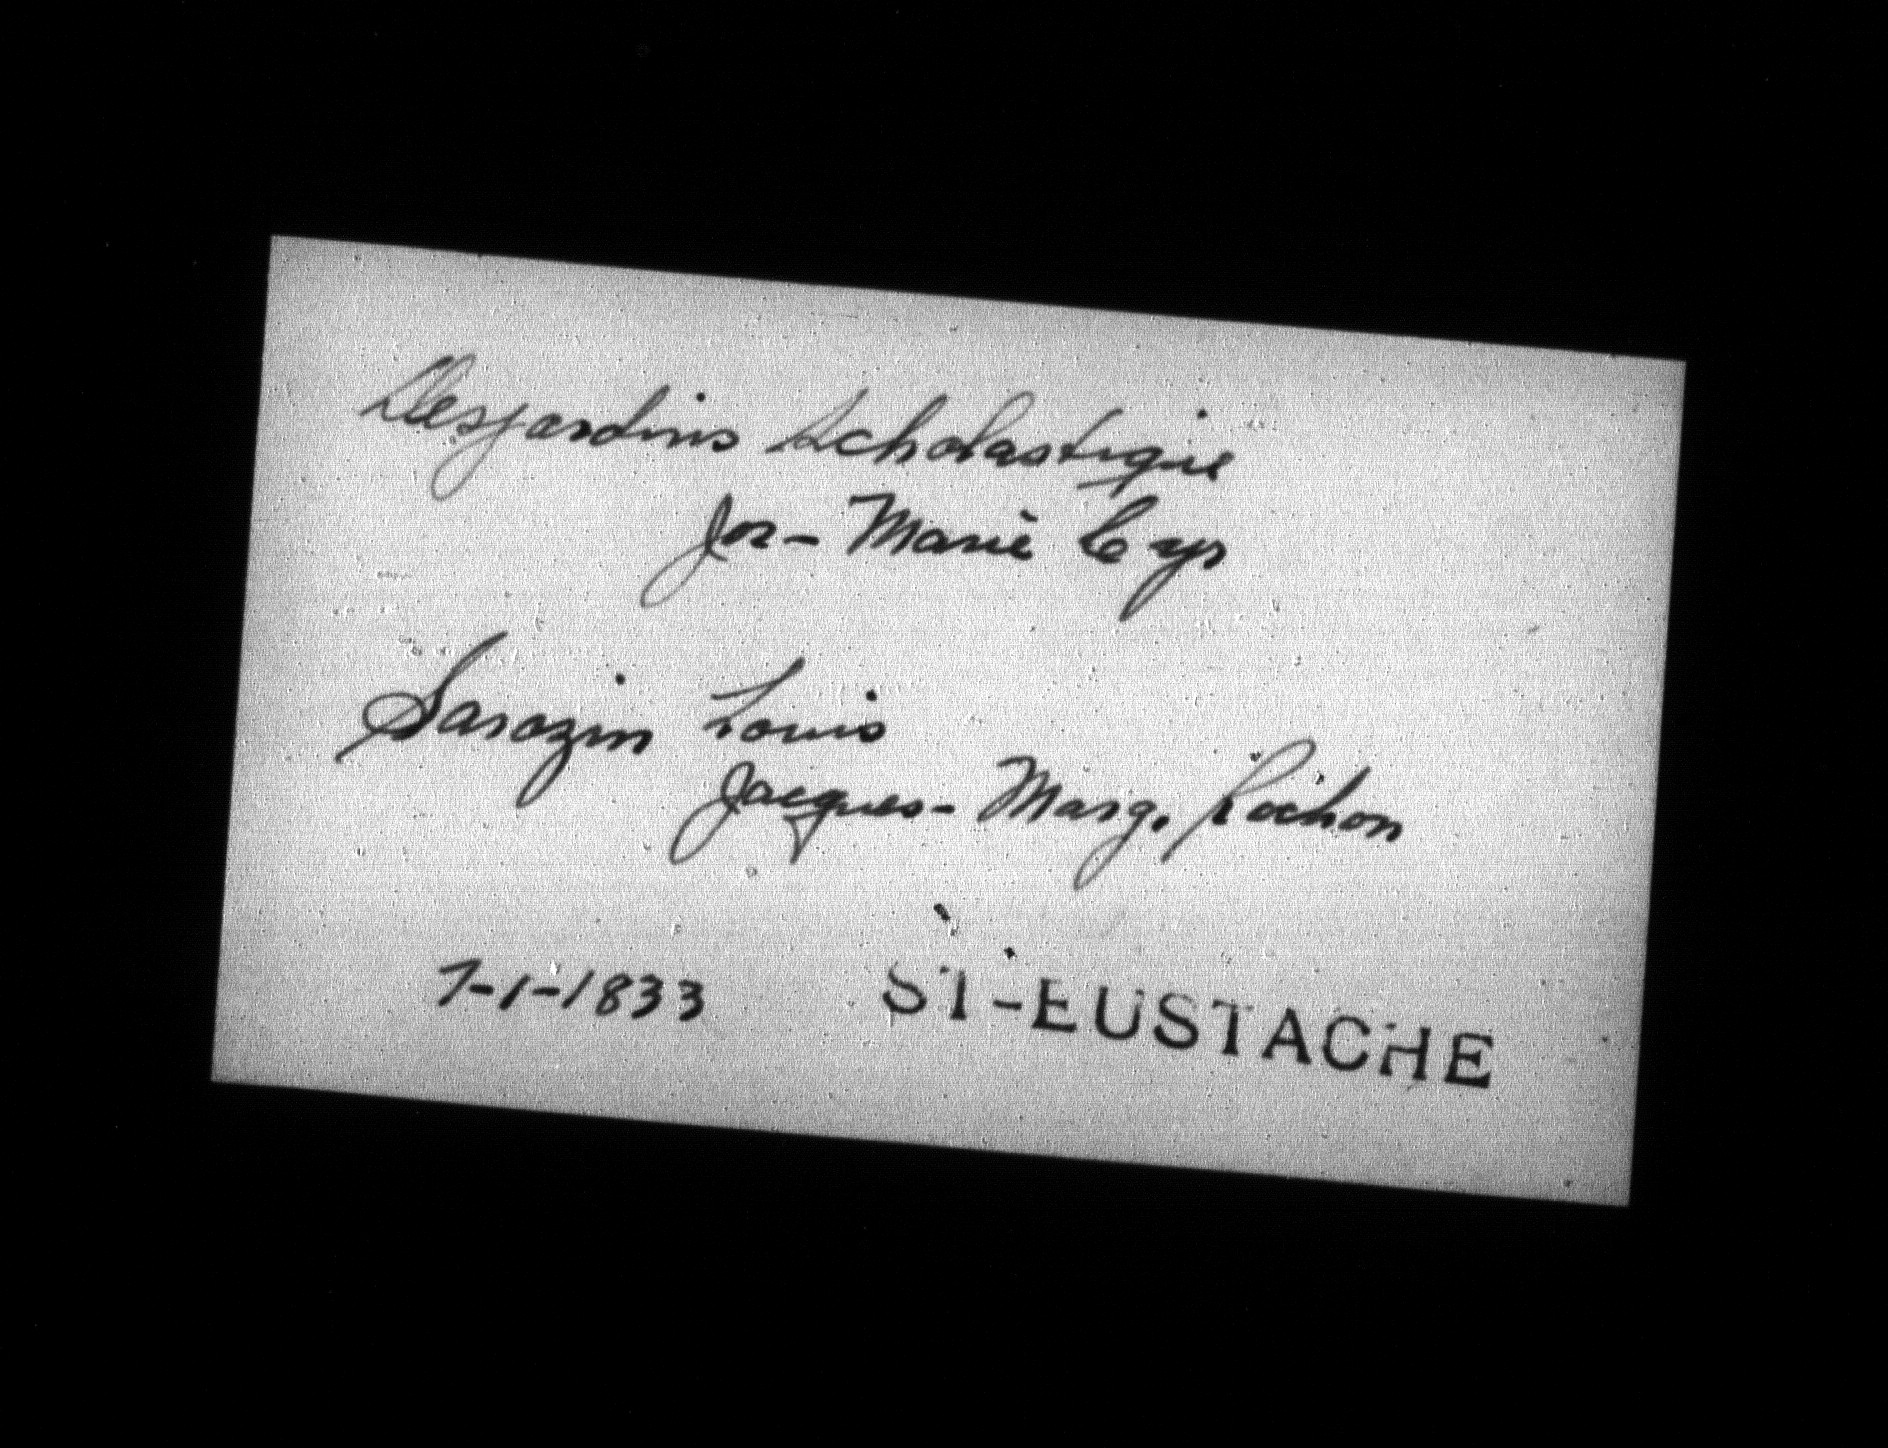 Desjardins Scholastique
Jos - Marie Cyr
Sarazin Louis
Jacques - Marg. Rochon
7-1-1833 ST-EUSTACHE